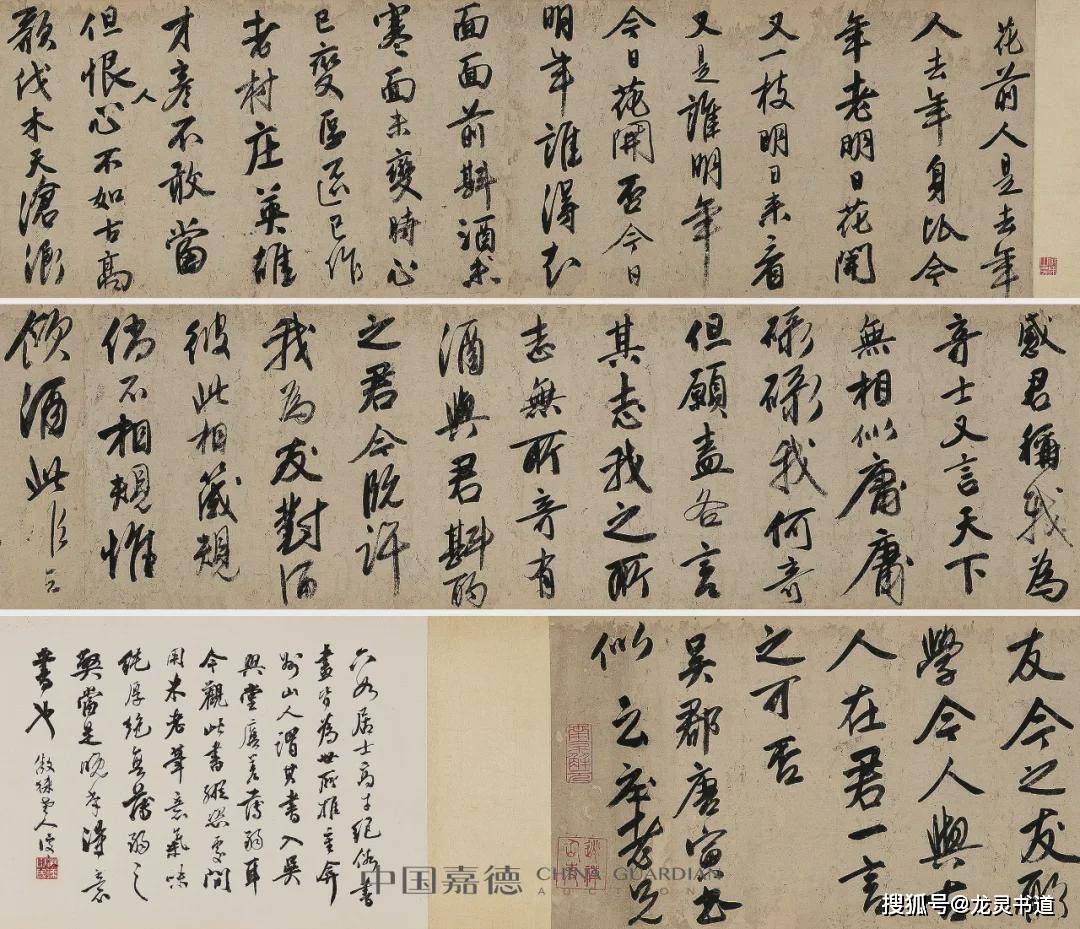 花前人是去年
人去年身比今
年老明日花開
又一枝明日来看
又是誰明年
今日花開否今日
明年誰得知
面面前斟酒未
寒面未變時心
已變區區已作
老村庄英雄
才彥不敢當
但恨人心不如古高
歌伐木天滄浪
感君稱我為
奇士又言天下
無相似庸庸
碌碌我何奇
但願盡各言
其志我之所
志無所奇有
酒與君斟酌
之君今既許
我為友對酒
彼此相箴規
倘不相規惟
飲酒此
友今之友形
學今人與古
人在君一言
之可否
吳郡唐寅書
似云莊老兄
南京解元
六如居士高才絕俗書
畫皆為世所推重弇
州山人謂其書入吳
興堂廡差薄弱耳
今觀此書縱恣處間
用米老筆意氣味
純厚絕無薄弱之
弊當是晚年得意
書也
中国嘉德 CHINA GUARDIAN
AUCTIONS
搜狐号@龙灵书道